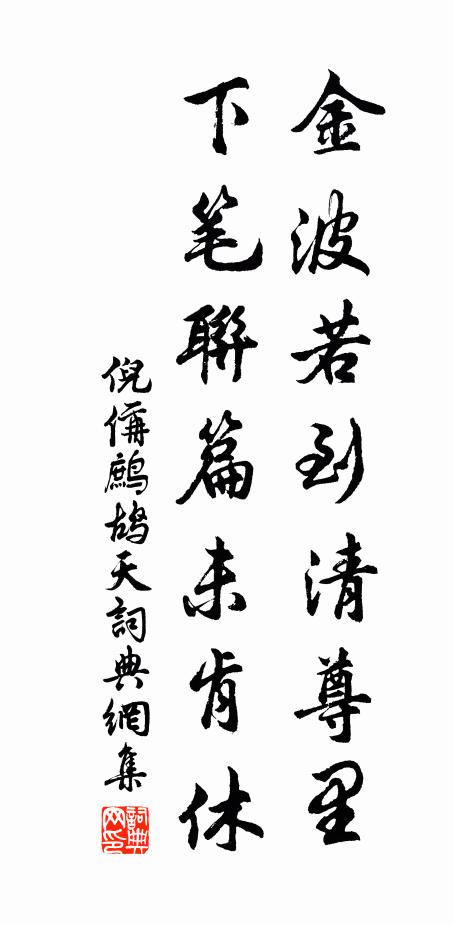 金波若到清尊里
下笔聯篇未肯休
倪偁鷓鴣天詞典網集
詞典网印